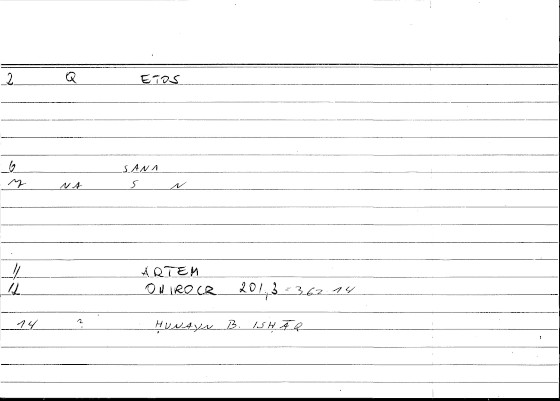 2 Q ETOS
6 SANA
7 NA S N
11 ARTEM
12 ONIROCR 201,3 = 362 14
14 ? ḤUNAYN B. ISḤĀQ